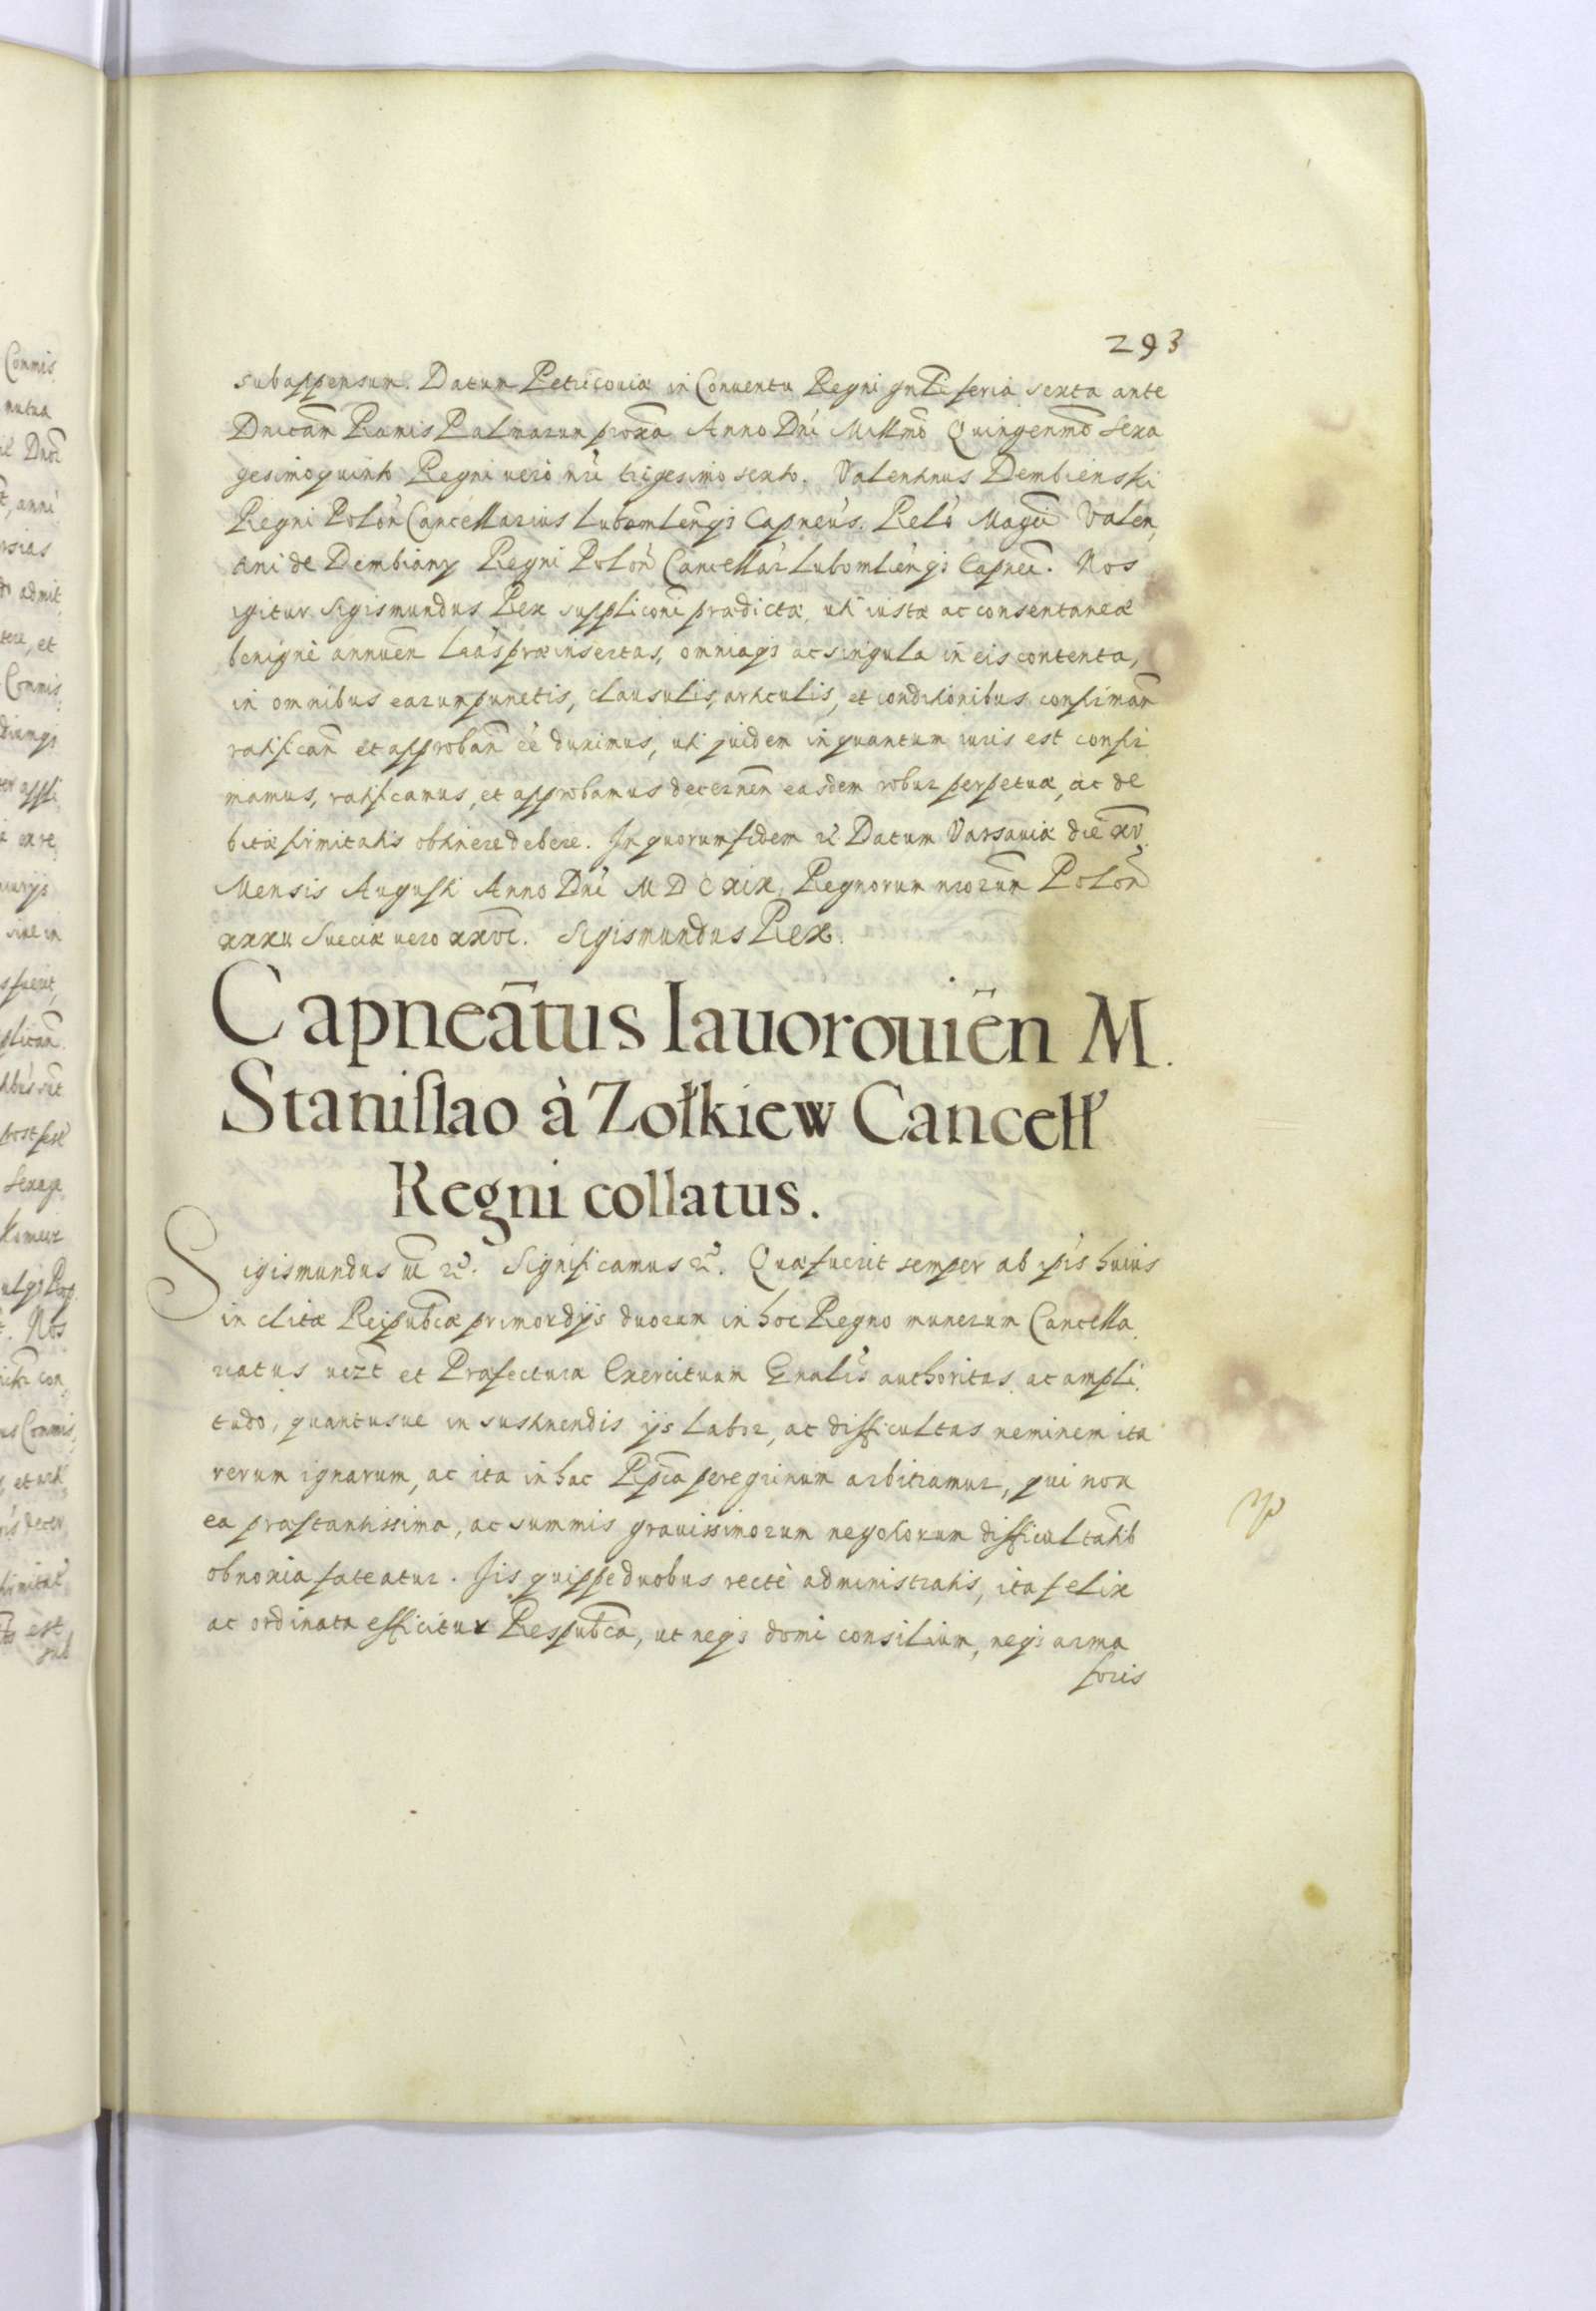 293
subappensum. Datum Petricouiæ in Conuentu Regni gnŁi feria sexta ante
Dnicam̃ Ramis Palmarum proxa Anno Dni Millmõ Quingenmõ Sexa
gesimoquinto Regni uero nri trigesimo sexto. Valentinus Dembienski
Regni Polon Cancellarius Lubomlengs Capneus. Relo Magci Valen,
tini de Dembiany Regni Polon Cancellar Lubomlengs Capnei. Nos
igitur Sigismundus Rex suppliconi prædictæ, uti iustæ ac consentaneæ
benignè annuen̄ Lrãs præinsertas, omniaqz ac singula in eis contenta,
in omnibus earum punctis, clausulis, articulis, et conditionibus confirman̄
ratifican̄ et approban̄ eé duximus, uti quidem inquantum iuris est confir
mamus, ratificamus, et approbamus decernen̄ easdem robur perpetuæ, ac de
bitæ firmitatis obtinere debere. In quorum fidem &c Datum Varsauiæ die xv.
Mensis Augusti Anno Dni MDCXIX. Regnorum nrorum Polon̄
xxxii Sueciæ uero xxvi. Sigismundus Rex.
Capneãtus Iauorouiēn M.
Stanislao à Zołkiew Cancełł
Regni collatus.
Sigismundus &c. Significamus &c. Quæ fuerit semper ab ipis huius
inclitæ Reipubcæ primordijs duorum in hoc Regno munerum Cancella
riatus uezt et Præfecturæ Exercituum Gnalis authoritas, ac ampli
tudo, quantusue in sustinendis ijs labor, ac difficultas neminem ita
rerum ignarum, ac ita in hac Rpca peregrinum arbitramur, qui non
ea præstantissima, ac summis grauissimorum negotiorum difficultatib
obnoxia fateatur. Iis quippe duobus rectè administratis, ita felix
ac ordinata efficitur Respubca, ut neqz domi consilium, neqz arma
foris